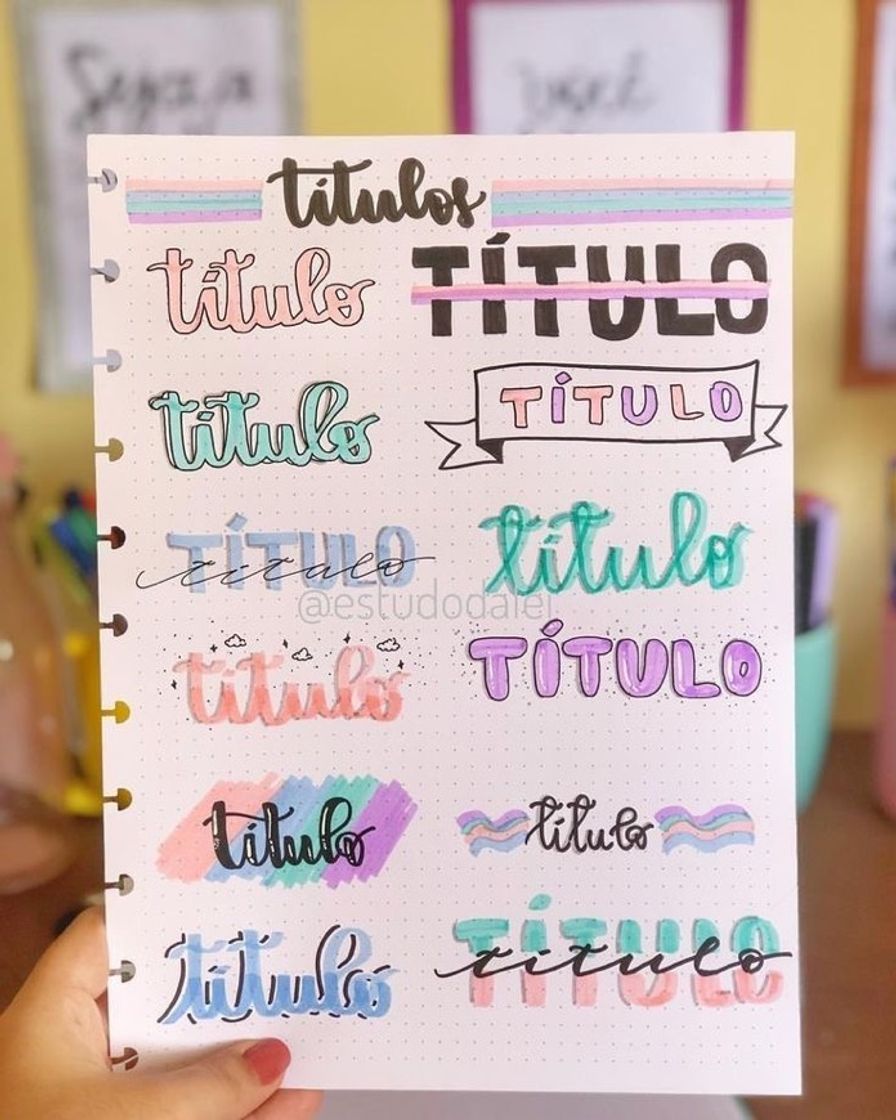 Seja a
você
títulos
título TÍTULO
título TÍTULO
TÍTULO título título
@estudodalel
título TÍTULO
título título
título TÍTULO título